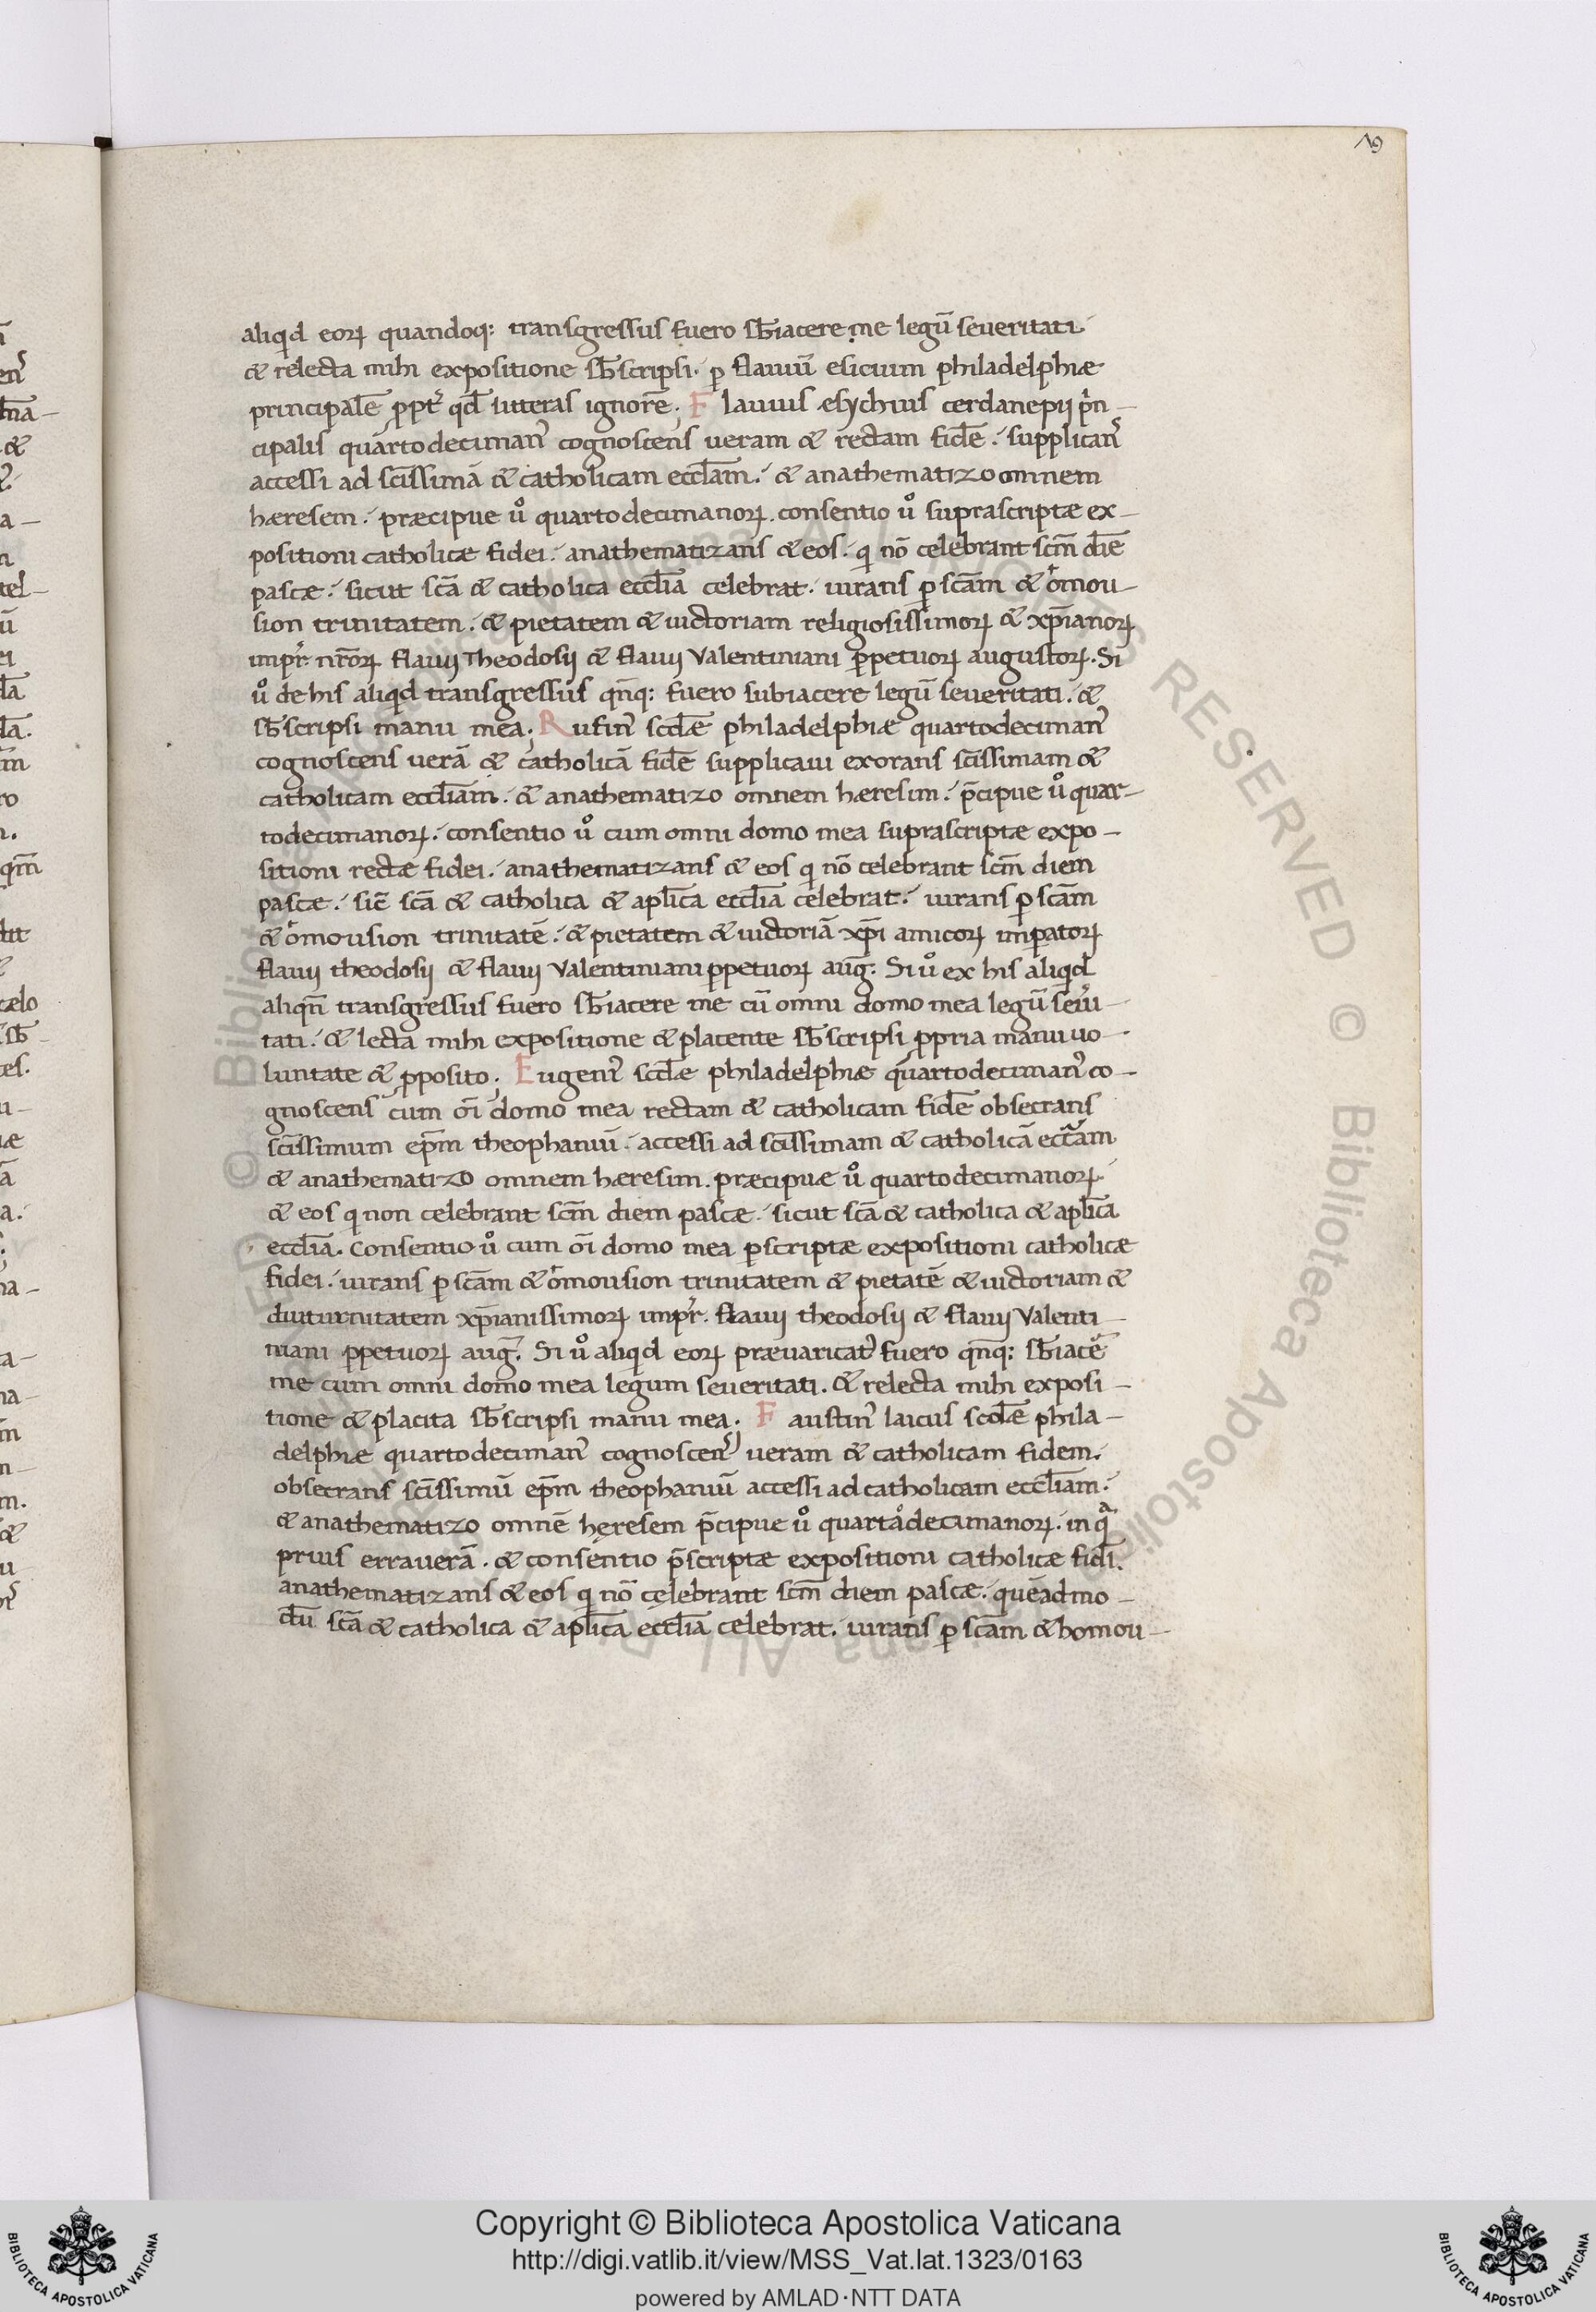 79
aliqͥd eoꝝ quandoq: transgressus fuero sb̄iacere me legū seueritati.
& relecta mihi expositione sb̄scripsi. ꝑ flauiū esicium philadelphiæ
principalē ꝓpt̓ qd̄ litteras ignorē. Flauius esychius cerdanepij pͥn-
cipalis quartodecimanꝰ cognoscens ueram & rectam fidē. supplicanˢ
accessi ad sc̄issimā & catholicam eccl̄am. & anathematizo omnem
hæresem. præcipue uͦ quartodecimanoꝝ. consentio uͦ suprascriptæ ex-
positioni catholicæ fidei. anathematizans & eos. qͥ nō celebrant sc̄m diē
pascæ. sicut sc̄a & catholica eccl̄ia celebrat. iurans ꝑ sc̄am & omou-
sion trinitatem. & pietatem & uictoriam religiosissimoꝝ & xp̄ianoꝝ
impr̓ nr̄oꝝ flauij Theodosij & flauij Valentiniani ꝑpetuoꝝ augustoꝝ. Si
uͦ de his aliqͥd transgressus qn̄q: fuero subiacere legū seueritati. &
sb̄scripsi manu mea. Rufinꝰ sc̄dæ philadelphiæ quartodecimanꝰ
cognoscens uerā & catholicā fidē supplicaui exorans sc̄issimam &
catholicam eccl̄iam. & anathematizo omnem hæresim. p̄cipue uͦ quar-
todecimanoꝝ. consentio uͦ cum omni domo mea suprascriptæ expo-
sitioni rectæ fidei. anathematizans & eos qͥ nō celebrant sc̄m diem
pascæ. sic̄ sc̄a & catholica & apl̄ica eccl̄ia celebrat. iurans ꝑ sc̄am
& omousion trinitatē. & pietatem & uictoriā xp̄i amicoꝝ imꝑatoꝝ
flauij theodosij & flauij Valentiniani ꝑpetuoꝝ auḡ. Si uͦ ex his aliqͥd
aliqn̄ transgressus fuero sb̄iacere me cū omni domo mea legū seu̓i-
tati. & lecta mihi expositione & placente sb̄scripsi ꝓpria manu uo-
luntate & ꝓposito. Eugenꝰ sc̄dæ philadelphiæ quartodecimanꝰ co-
gnoscens cum oī domo mea rectam & catholicam fidē obsecrans
sc̄issimum ep̄m theophaniū. accessi ad sc̄issimam & catholicā eccl̄am
& anathematizo omnem hæresim. præcipuæ uͦ quartodecimanoꝝ.
& eos qͥ non celebrant sc̄m diem pascæ. sicut sc̄a & catholica & apl̄ica
eccl̄ia. Consentio uͦ cum oī domo mea ꝑscriptæ expositioni catholicæ
fidei. iurans ꝑ sc̄am & omousion trinitatem & pietatē & uictoriam &
diuturnitatem xp̄ianissimoꝝ impr̓. flauij theodosij & flauij Valenti-
niani ꝑpetuoꝝ aug̓. Si uͦ aliqͥd eoꝝ præuaricatꝰ fuero qn̄q: sb̄iacē
me cum omni domo mea legum seueritati. & relecta mihi exposi-
tione & placita sb̄scripsi manu mea. Faustinꝰ laicus sc̄dæ phila-
delphiæ quartodecimanꝰ cognoscenˢ ueram & catholicam fidem.
obsecrans sc̄issimū ep̄m theophaniū accessi ad catholicam eccl̄iam.
& anathematizo omnē hęresem p̄cipue uͦ quartaͦdecimanoꝝ. in qͣ
prius erraueram̄. & consentio p̄scriptæ expositioni catholicæ fidī.
anathematizans & eos qͥ nō celebrant sc̄m diem pascæ. quēadmo-
dū sc̄a & catholica & apl̄ica eccl̄ia celebrat. iurans ꝑ sc̄am & homou-
Copyright © Biblioteca Apostolica Vaticana
http://digi.vatlib.it/view/MSS_Vat.lat.1323/0163
powered by AMLAD·NTT DATA